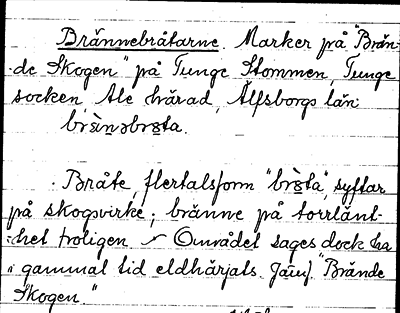 Brännebråtarne. Marker på "Brän-
de Skogen" på Tunge Stommen, Tunge
socken, Ale härad, Älfsborgs län

Bråte, flertalsform "bròta", syftar
på skogsvirke; bränne på torrlänt-
het troligen – Området sages dock ha
i gammal tid eldhärjats. Jämf. "Brände
Skogen."